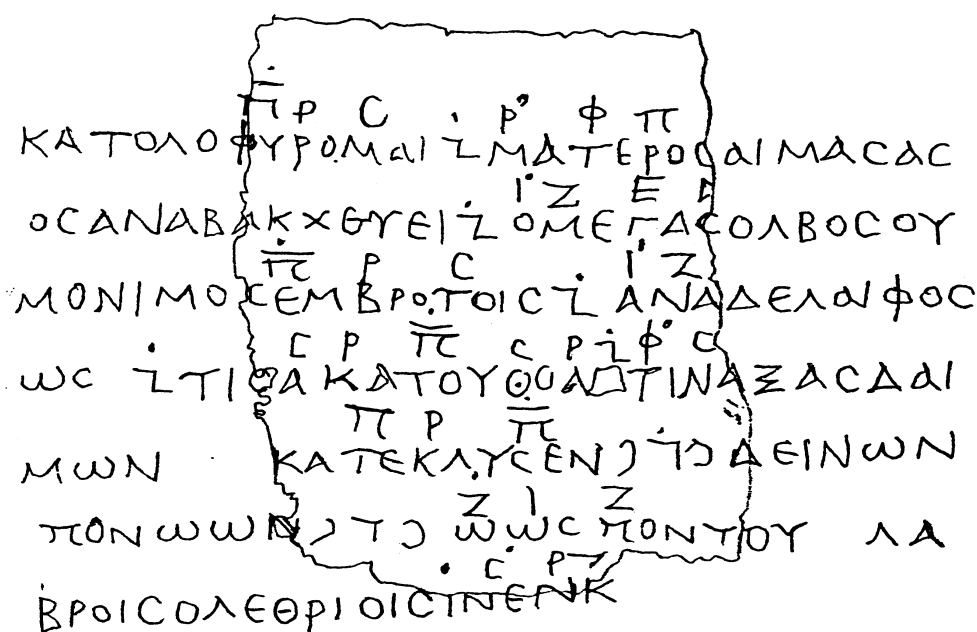 Π Ρ C Ρ Φ Π
ΚΑΤΟΛΟΦΥΡΟΜΑΙ Ζ ΜΑΤΕΡΟCΑΙΜΑCΑC
Ι Ζ Ε
ΟCΑΝΑΒΑΚΧΕΥΕΙ Ζ ΟΜΕΓΑCΟΛΒΟCΟΥ
Π Ρ C Ι Ζ
ΜΟΝΙΜΟCΕΜΒΡΟΤΟΙC Ζ ΑΝΑΔΕΛΑΙΦΟC
C Ρ Π C Ρ Ζ Φ C
ωC Ζ ΤΙCΑΚΑΤΟΥΘΟΑCΤΙΝΑΞΑCΔΑΙ
Π Ρ Π
ΜωΝ ΚΑΤΕΚΛΥCΕΝ Ͻ 7 Ͻ ΔΕΙΝωΝ
Ζ Ι Ζ
ΠΟΝωωΝ Ͻ 7 Ͻ ωωC ΠΟΝΤΟΥ ΛΑ
C Ρ 7
ΒΡΟΙCΟΛΕΘΡΙΟΙCΙΝΕΝΚ